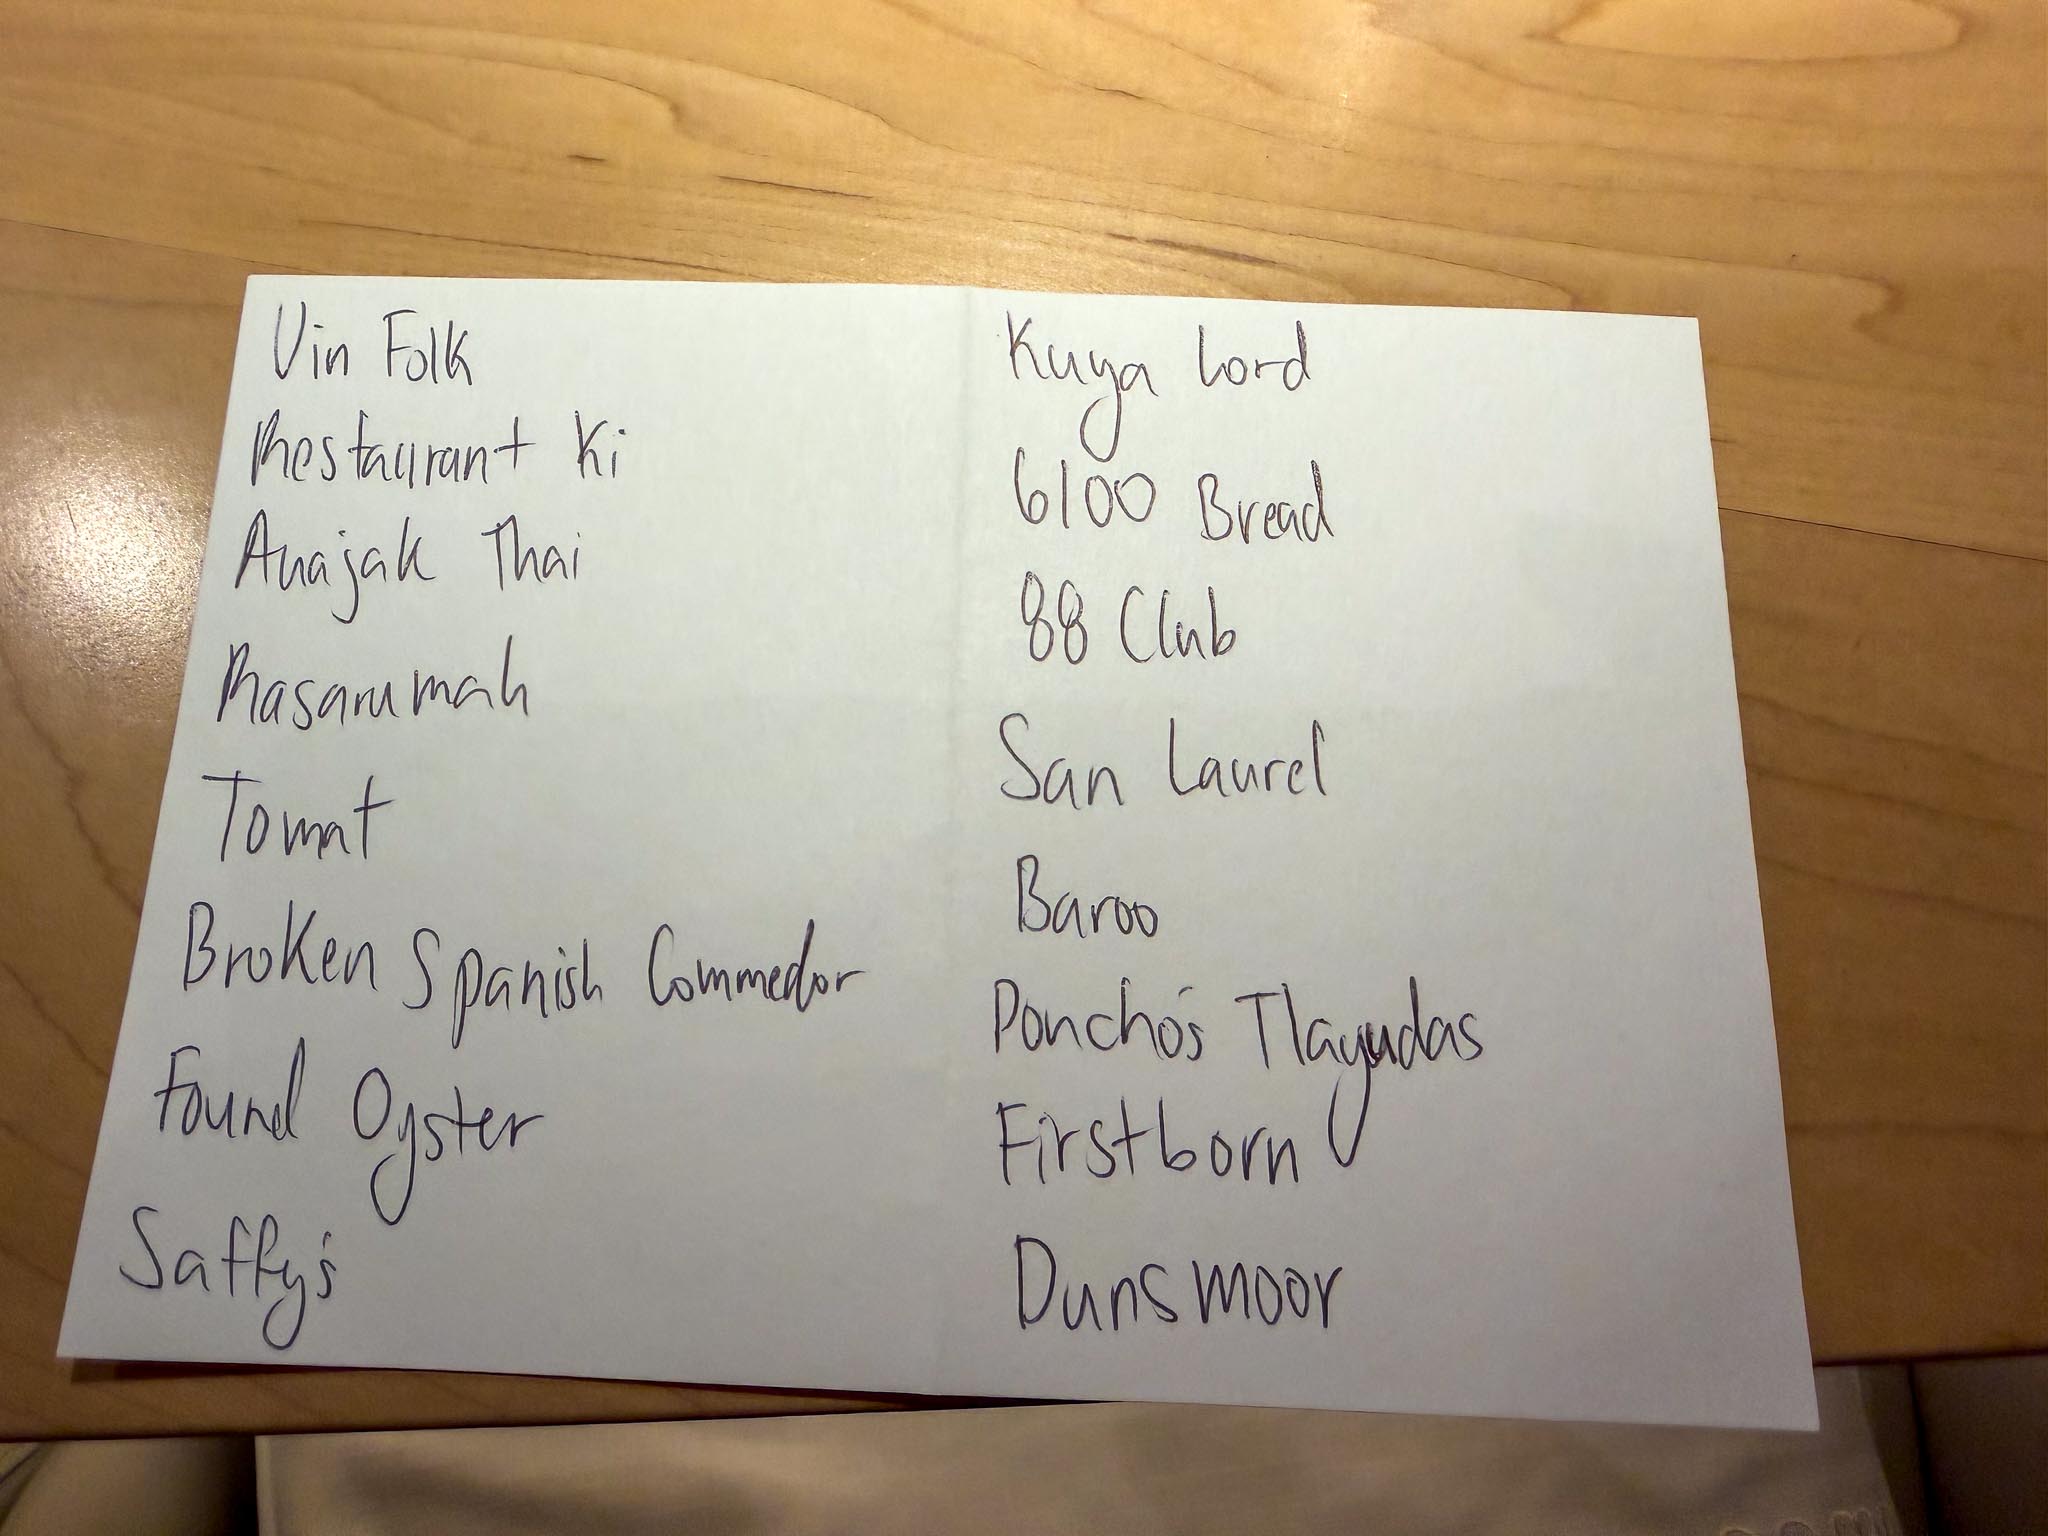 Vin Folk
Restaurant Ki
Anajak Thai
Rasarumah
Tomat
Broken Spanish Commedor
Found Oyster
Saffy's
Kuya Lord
6100 Bread
88 Club
San Laurel
Baroo
Poncho's Tlayudas
Firstborn
Dunsmoor